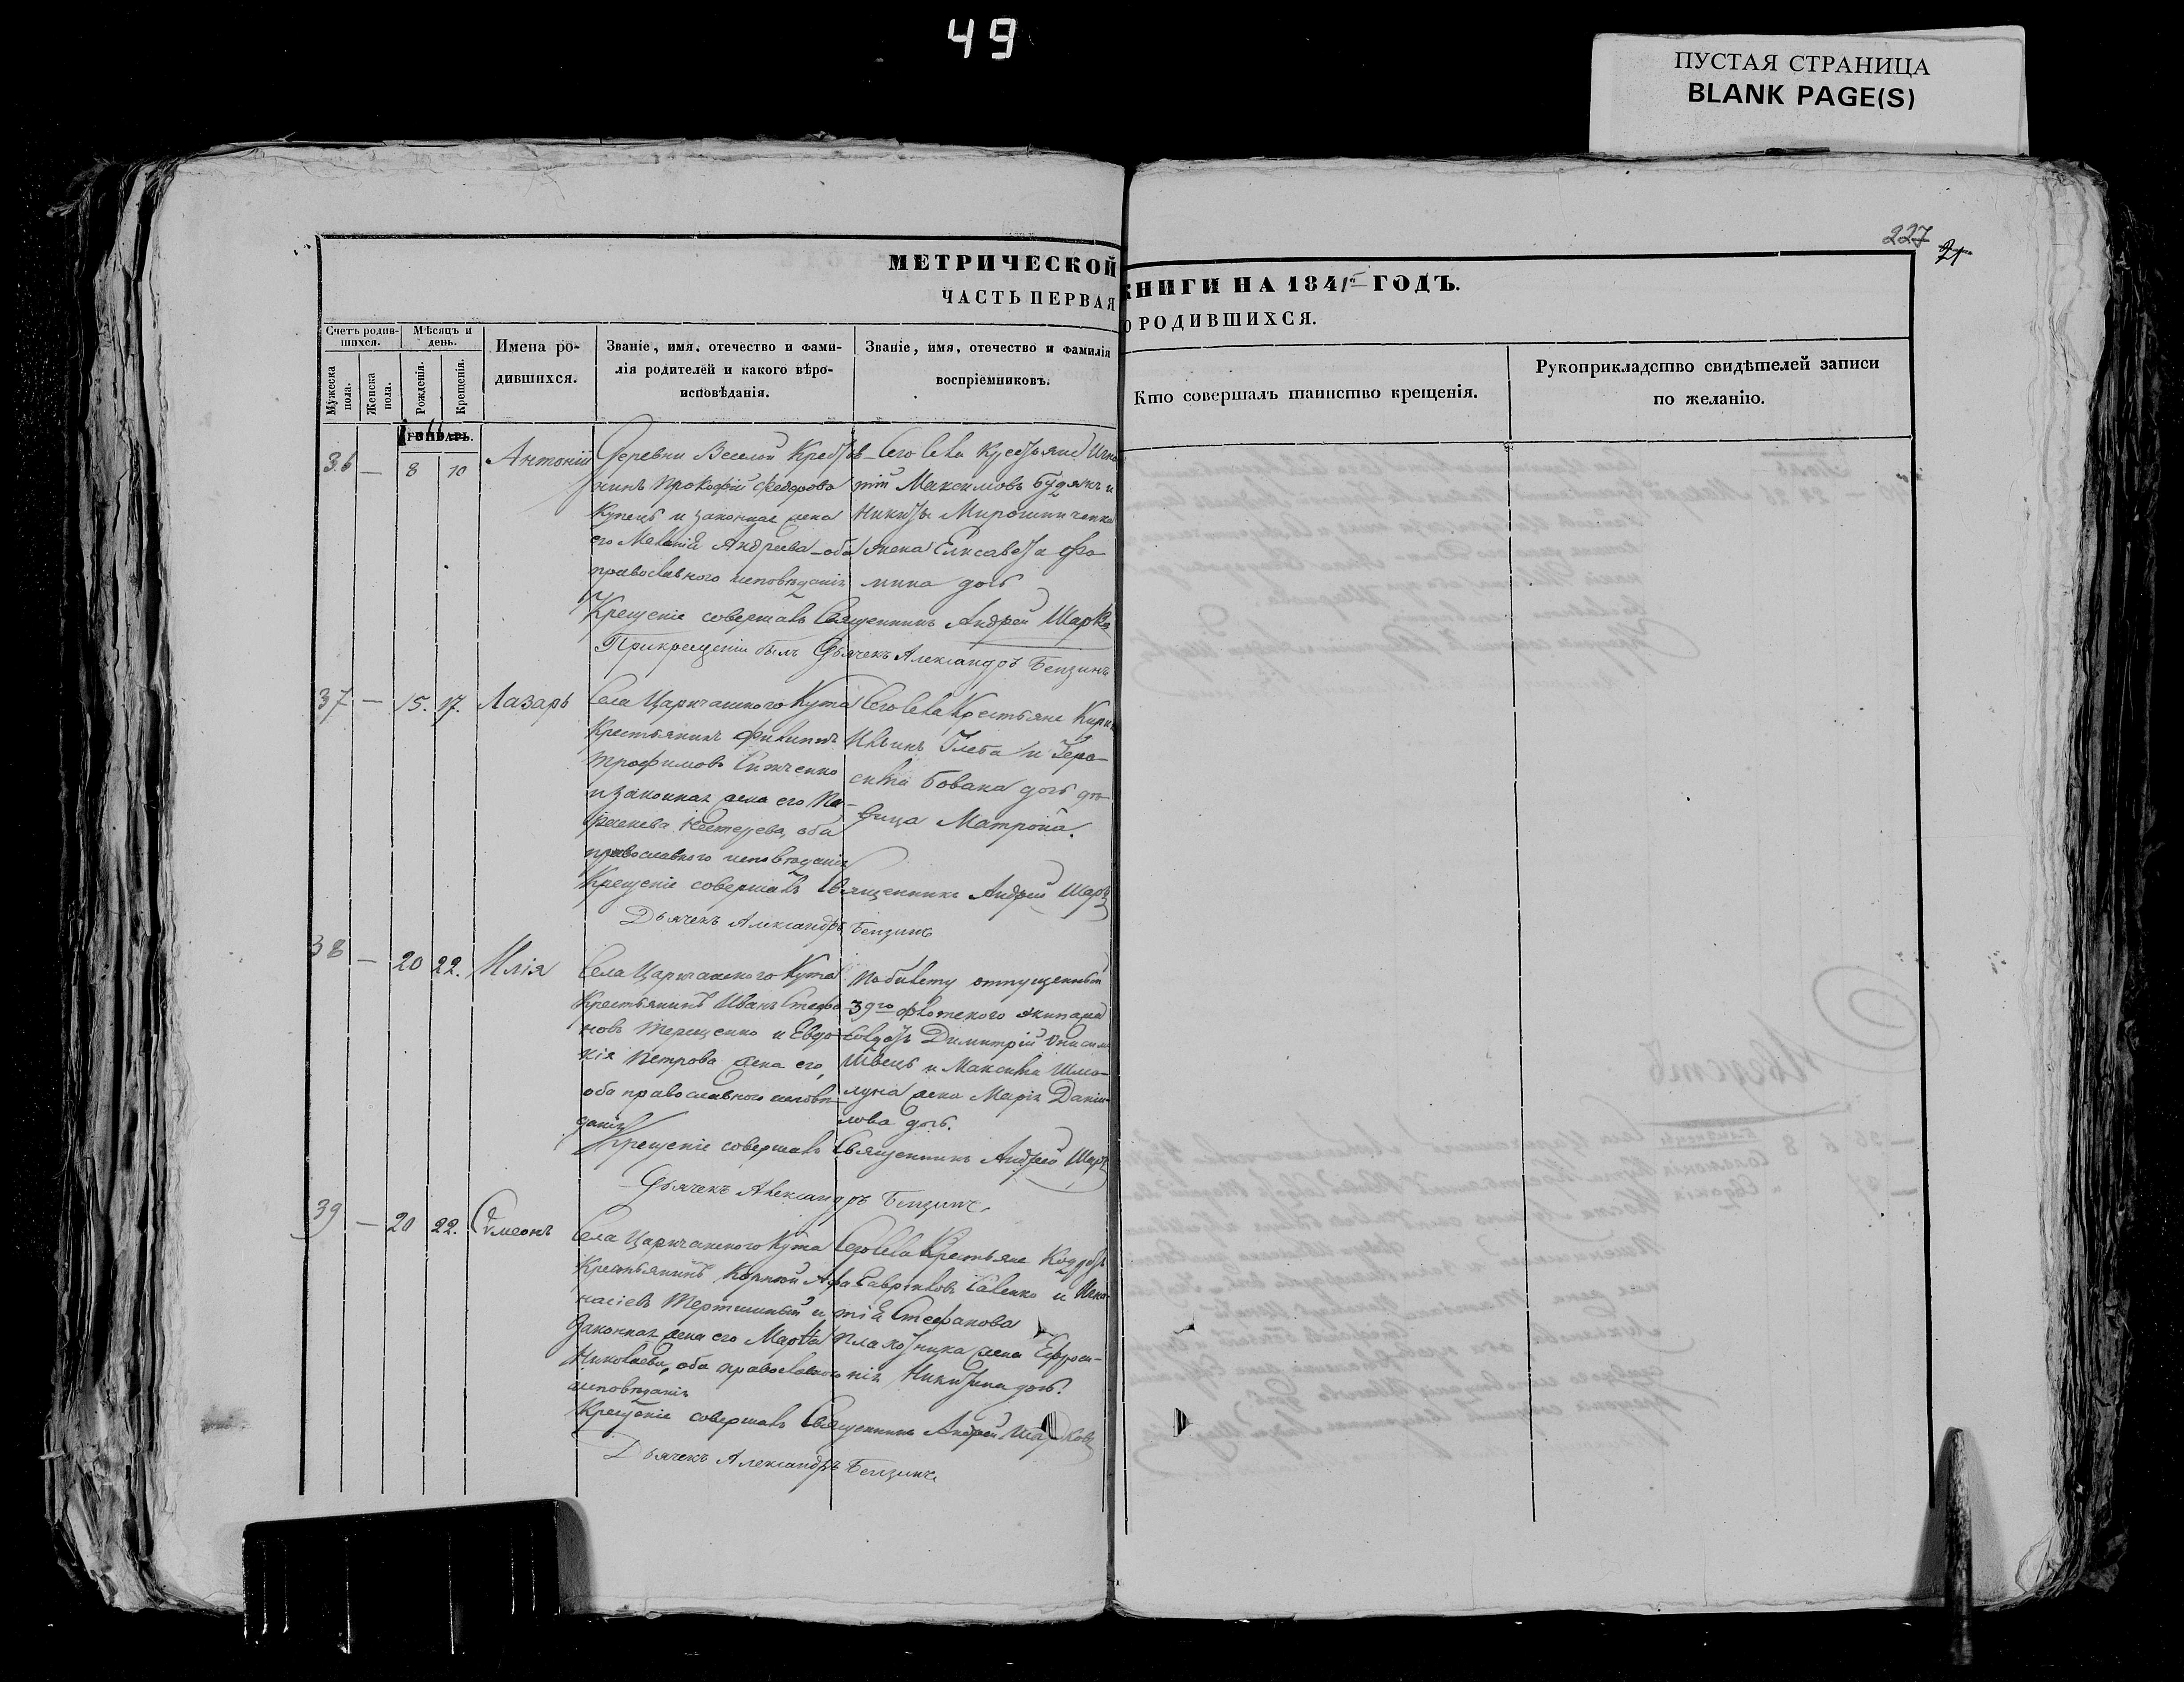 49
ПУСТАЯ СТРАНИЦА
BLANK PAGE(S)
227
МЕТРИЧЕСКОЙ КНИГИ НА 1841 ГОДЪ.
ЧАСТЬ ПЕРВАЯ О РОДИВШИХСЯ.
Счетъ родив-
шихся.
Мѣсяцъ и
день.
Мужеска
пола.
Женска
пола.
Рожденія.
Крещенія.
Имена ро-
дившихся.
Званіе, имя, отечество и фами-
лія родителей и какого вѣро-
исповѣданія.
Званіе, имя, отечество и фамилія
воспріемниковъ.
Кто совершалъ таинство крещенія.
Рукоприкладство свидѣтелей записи
по желанію.
36 — 8 10 Антоній
Деревни Веселой Кресть
янинъ Прокофій Федоровъ
Купецъ и законная жена
его Меланія Андреева оба
православного исповѣданія
Сего села Крестьяне
Максимовъ Будякъ и
Никиты Мирошниченка
жена Елисавета Фо-
мина дочь
Крещеніе совершалъ Священникъ Андрей
При крещеніи былъ Дьячекъ Александръ Бензинъ
37 — 15. 17. Лазарь
Села Царичанского Кута
Крестьянинъ Филиппъ
Трофимовъ
и законная жена его Па-
раскева Нестерева, оба
православного исповѣданія
Сего села Крестьяне
Ильинъ Глеба и Гера-
сима Бована дочь дѣ-
вица Матрона.
Крещеніе совершалъ Священникъ Андрей
Дьячекъ Александръ Бензинъ
38 — 20 22. Илія
Села Царичанского Кута
Крестьянинъ Иванъ Стефа
новъ Терещенко и Евдо-
кія Петрова жена его,
оба православного исповѣ-
данія
По билету отпущенный
39го флотского экипажа
Солдатъ Димитрій
Швецъ и Максима Шмо-
луна жена Марія Дани-
лова дочь.
Крещеніе совершалъ Священникъ Андрей
Дьячекъ Александръ Бензинъ.
39 — 20 22. Сѵмеонъ
Села Царичанского Кута
Крестьянинъ Корній Афа
насіевъ Тертишный и
законная жена его Марѳа
Николаева, оба православного
исповѣданія
Сего села Крестьяне Кодратъ
Гавриловъ Саленко и
Стефанова
Плахотника жена Ефроси-
нія Никитина дочь.
Крещеніе совершалъ Священникъ Андрей
Дьячекъ Александръ Бензинъ